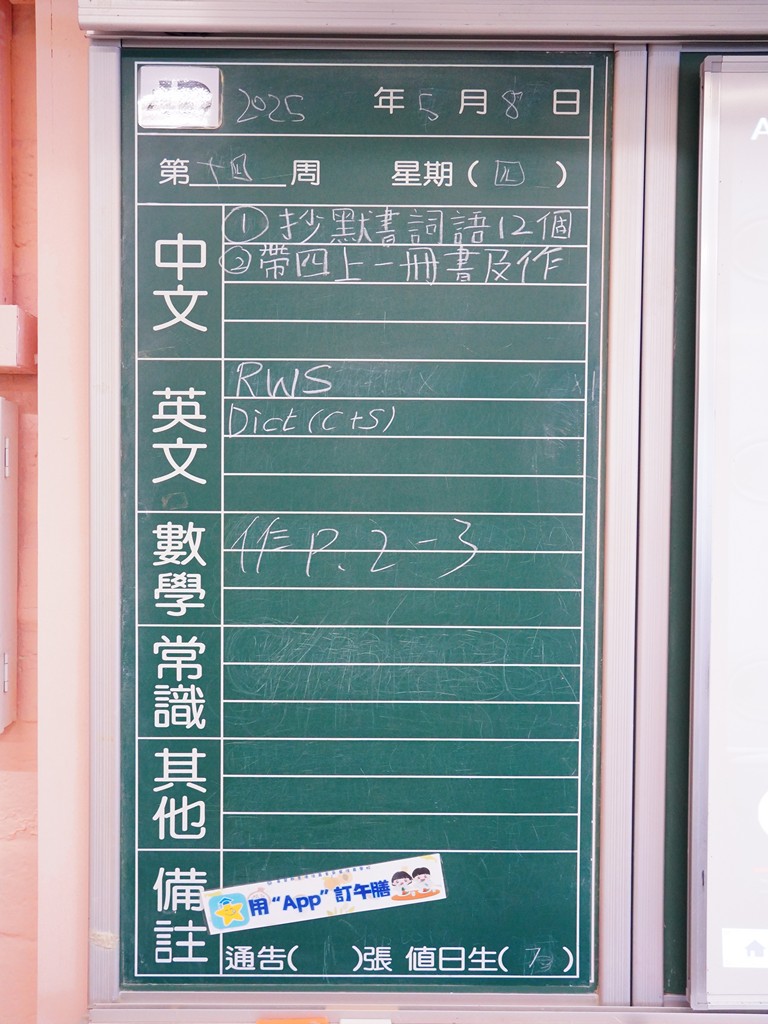 2025 年 5 月 8 日
第 十四 周 星期 ( 四 )
中文
① 抄默書詞語12個
② 帶四上一冊書及作
英文
RWS
Dict (C+S)
數學
作 P. 2-3
常識
其他
備註
用“App”訂午膳
通告( )張 值日生( 7 )